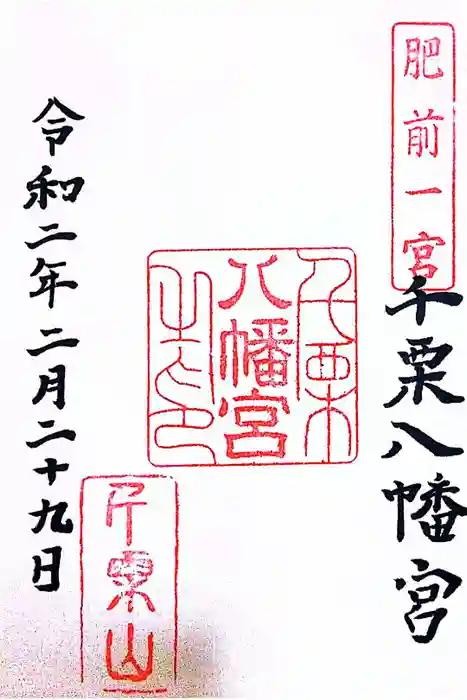 肥前一宮
千栗八幡宮
千栗
八幡宮
之印
千栗山
令和二年二月二十九日